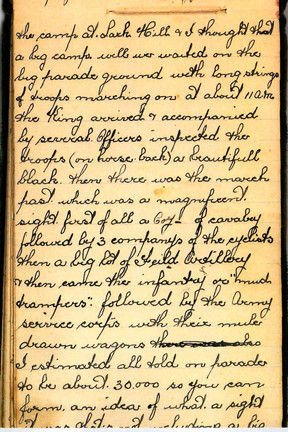 the camp at Lark Hill & I thought that
a big camp. well we waited on the
big parade ground with long strings
of troops marching on at about 11 a.m
the King arrived & accompanied
by several Officers inspected the
troops (on horse back) a beautifull
black. then there was the march
past. which was a magnificent.
sight first of all a Coy- of cavalry
followed by 3 companys of the cyclists
then a big lot of Feild Artillery
& then came the infantry or "mud
trampers". followed by the Army
service corps with their mule
drawn wagons also
I estimated all told on parade
to be about 30.000 so you can
form. an idea of what. a sight
it was that. not including a big